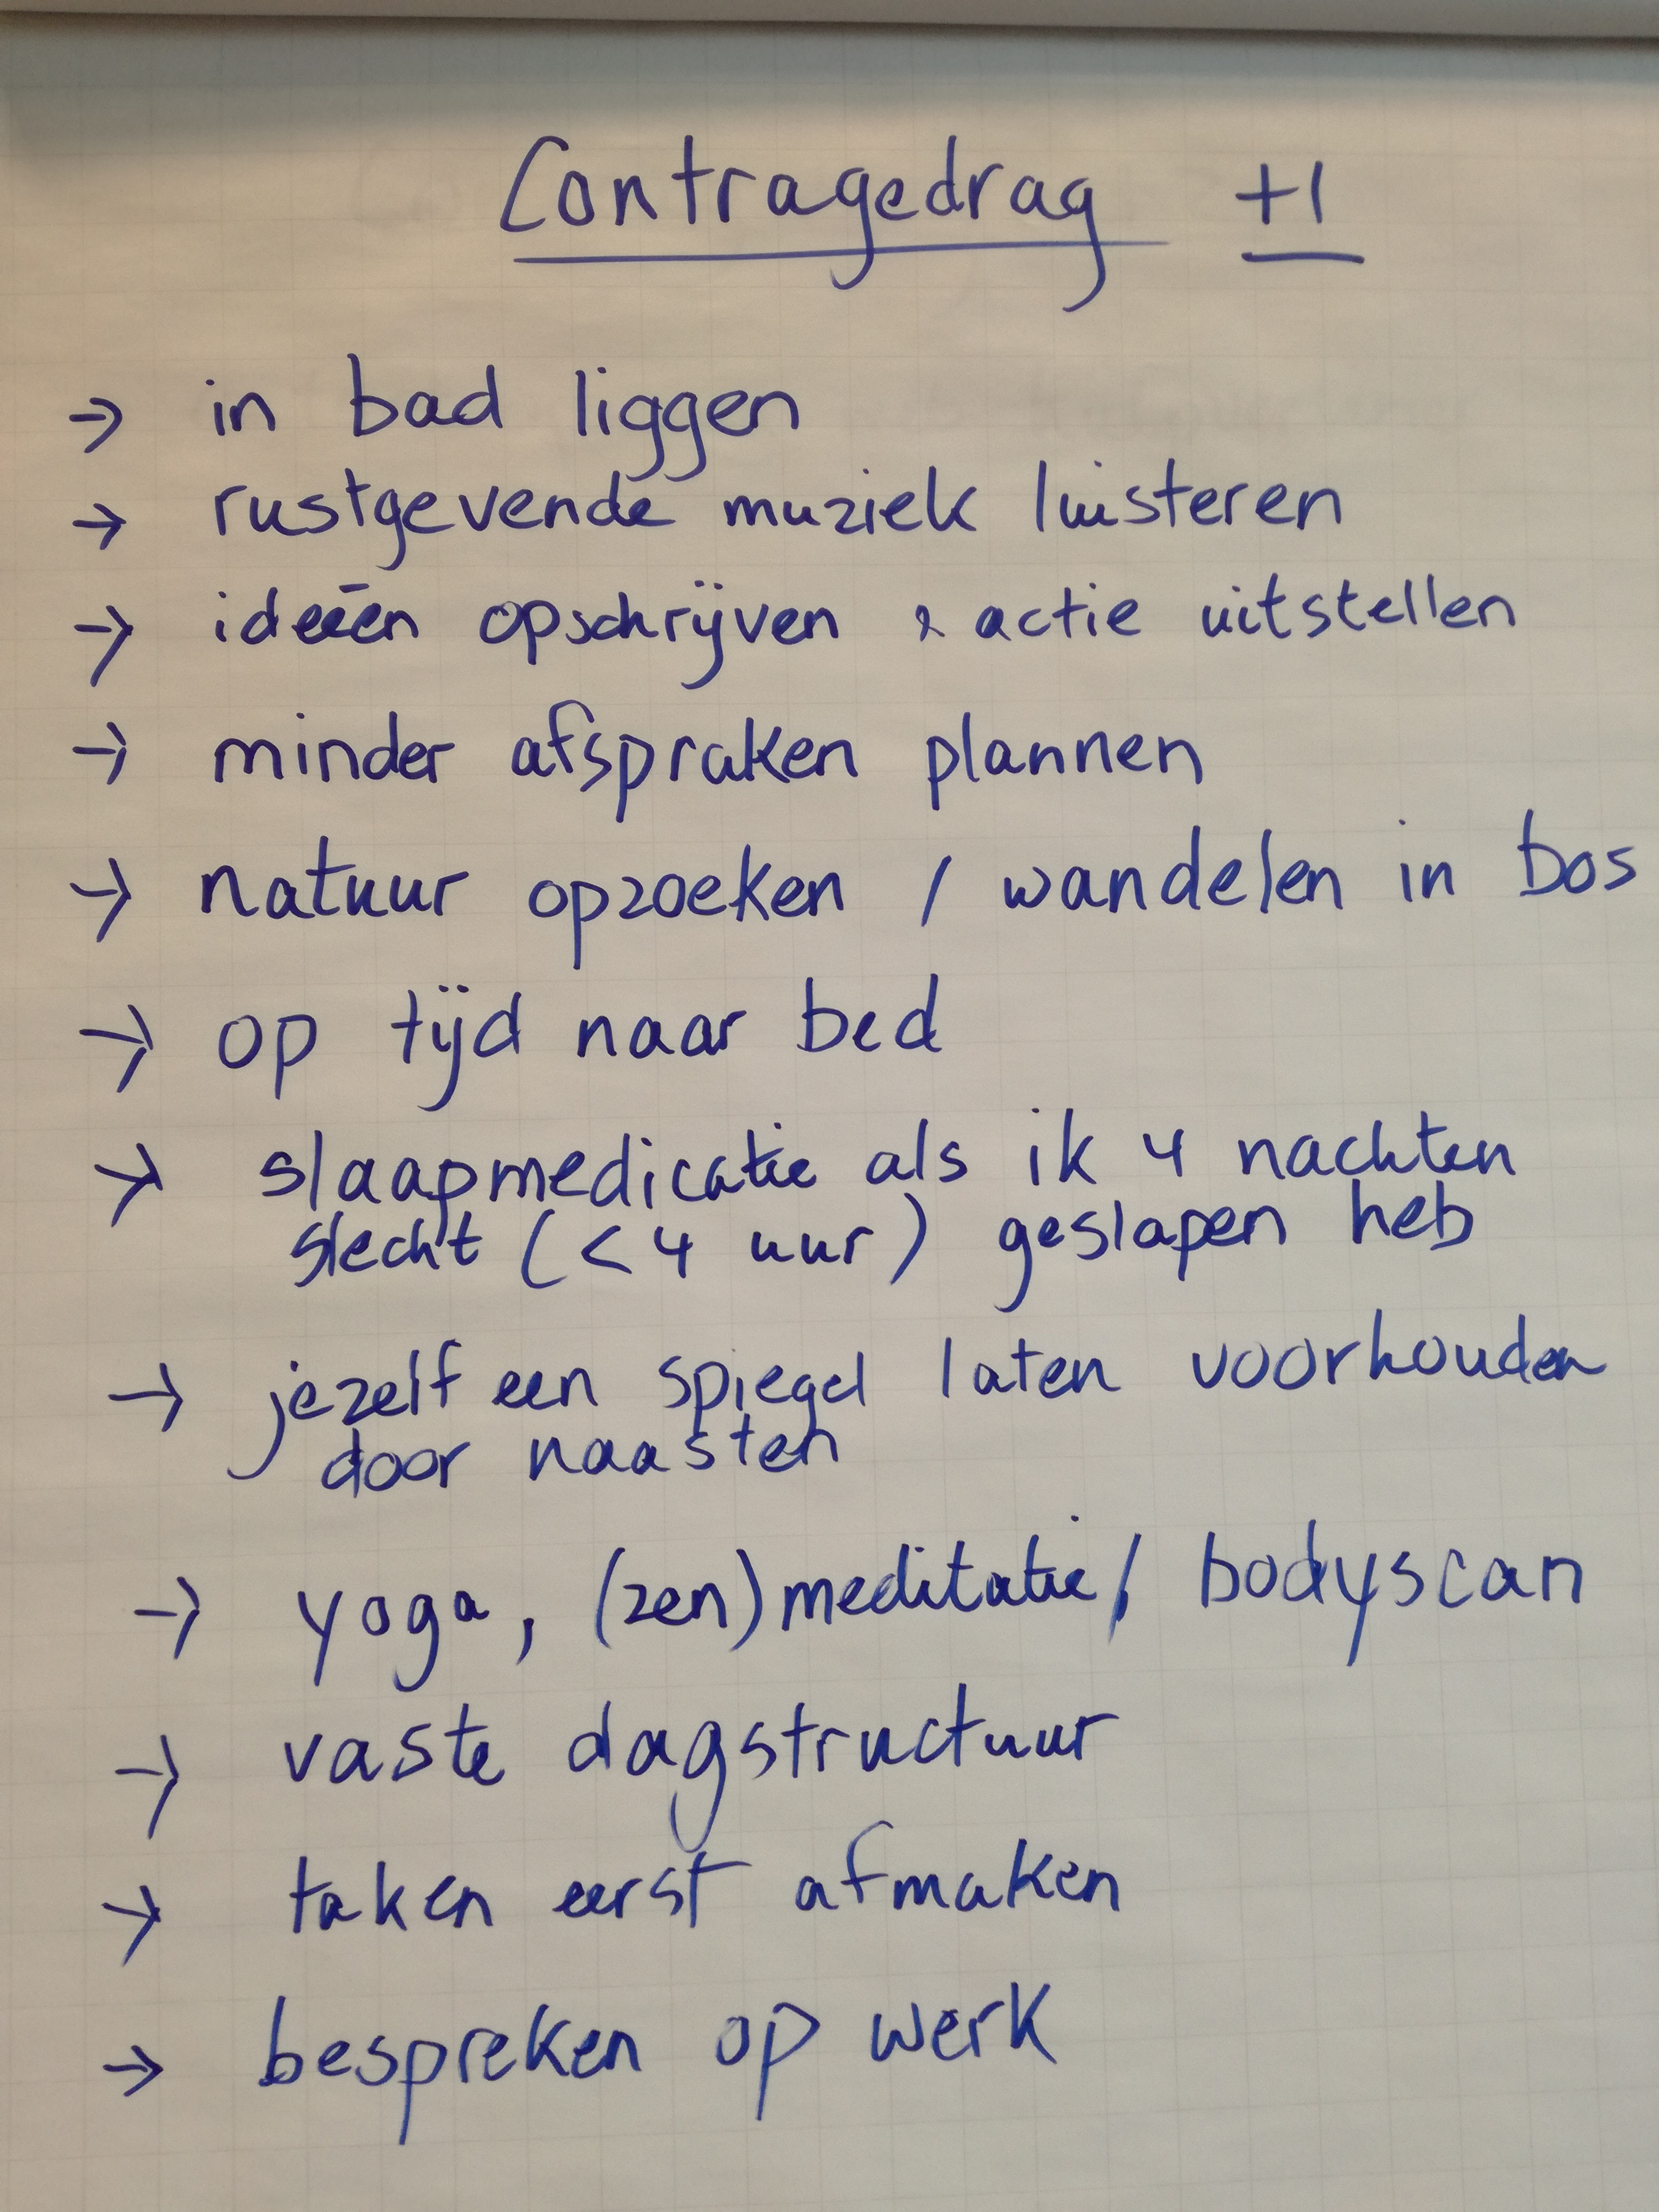 Contragedrag +1
→ in bad liggen
→ rustgevende muziek luisteren
→ ideeën opschrijven & actie uitstellen
→ minder afspraken plannen
→ natuur opzoeken / wandelen in bos
→ op tijd naar bed
→ slaapmedicatie als ik 4 nachten
slecht (< 4 uur) geslapen heb
→ jezelf een spiegel laten voorhouden
door naasten
→ yoga, (zen) meditatie / bodyscan
→ vaste dagstructuur
→ taken eerst afmaken
→ bespreken op werk